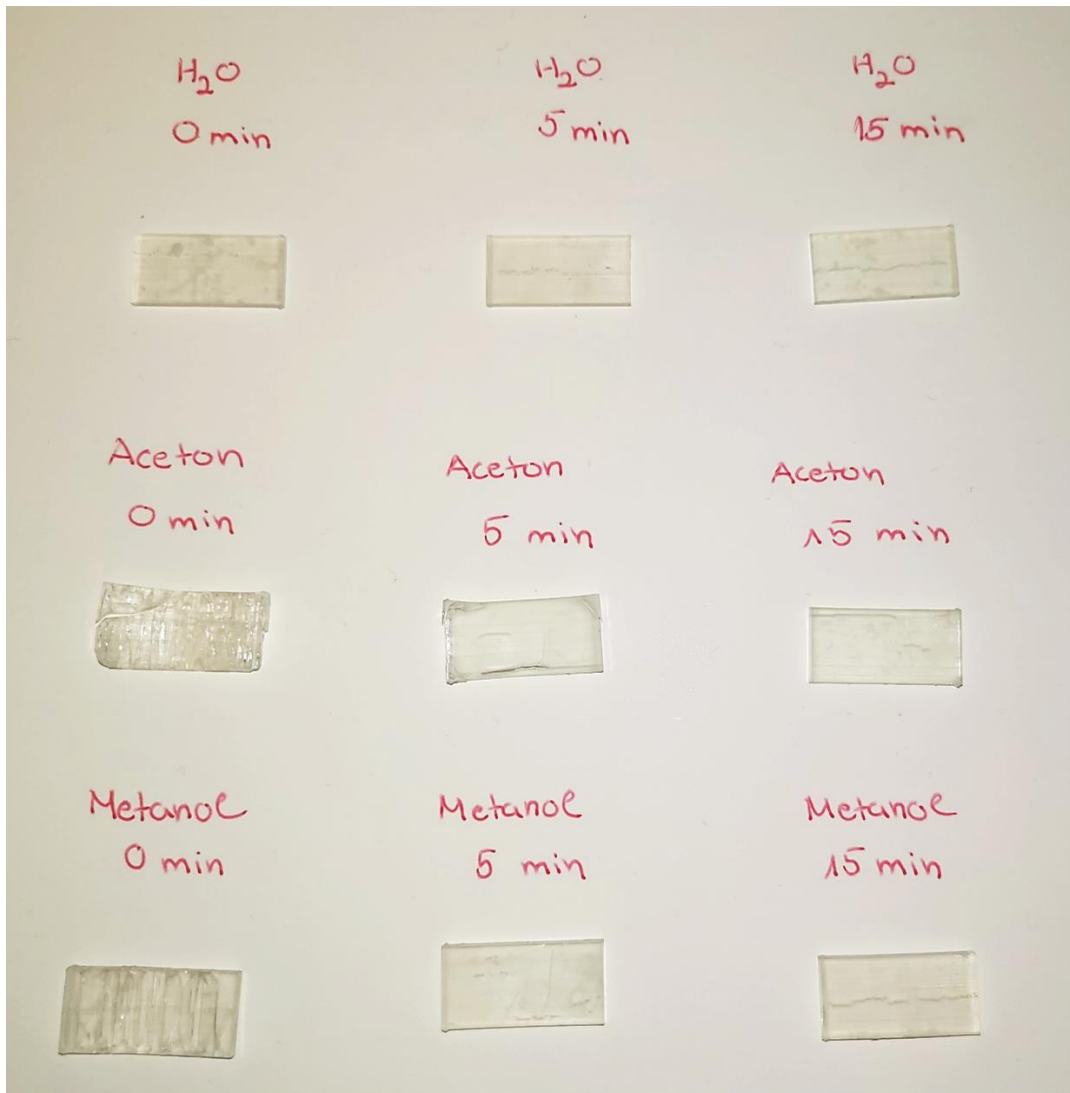 H₂O
0 min
H₂O
5 min
H₂O
15 min
Aceton
0 min
Aceton
5 min
Aceton
15 min
Metanol
0 min
Metanol
5 min
Metanol
15 min